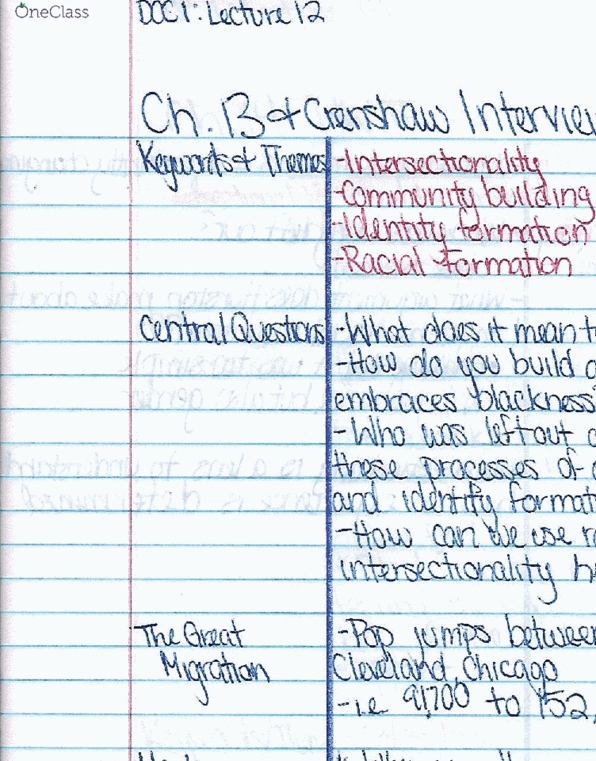 OneClass
DOC 1: Lecture 12
Ch. 13 & Crenshaw Interview
Keywords & Themes
-Intersectionality
-Community building
-Identity formation
-Racial formation
Central Questions
-What does it mean t
-How do you build a
embraces blackness
-Who was left out o
these processes of
and identity format
-How can we use r
intersectionality h
The Great
Migration
-Pop jumps between
Cleveland, Chicago
-i.e 91,700 to 152,